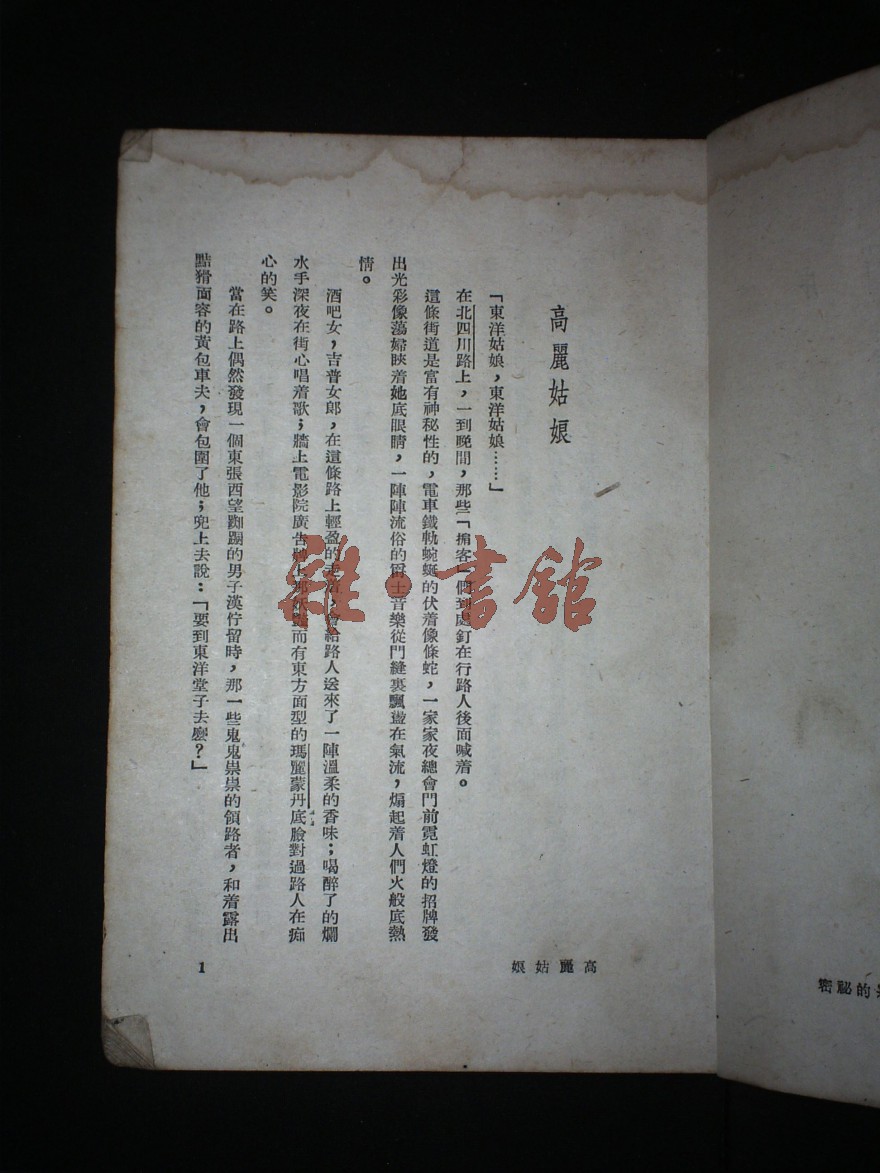 高麗姑娘
「東洋姑娘，東洋姑娘……」
在北四川路上，一到晚間，那些「掮客」們到處釘在行路人後面喊着。
這條街道是富有神秘性的，電車鐵軌蜿蜒的伏着像條蛇，一家家夜總會門前霓虹燈的招牌發
出光彩像蕩婦䀹着她底眼睛，一陣陣流俗的爵士音樂從門縫裏飄盪在氣流，煽起着人們火般底熱
情。
酒吧女，吉普女郎，在這條路上輕盈的走着，會給路人送來了一陣溫柔的香味；喝醉了的爛
水手深夜在街心唱着歌；牆上電影院廣告牌上那妖豔而有東方面型的瑪麗蒙丹底臉對過路人在痴
心的笑。
當在路上偶然發現一個東張西望踟躕的男子漢佇留時，那一些鬼鬼祟祟的領路者，和着露出
點猾面容的黃包車夫，會包圍了他；兜上去說：「要到東洋堂子去麽？」
高麗姑娘
1
的祕密
雜·書館